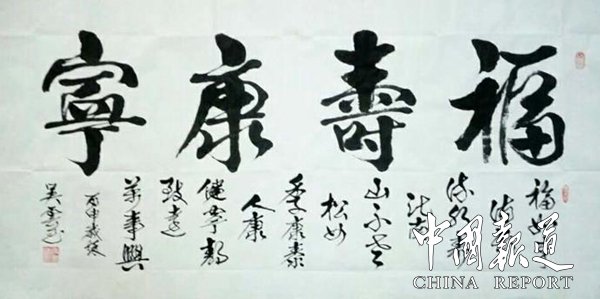 福壽康寧
福如
流水壽
比南
山不老
松
康泰
人康
健寧靜
致遠
萬事興
丙申歲秋
吴
中國報道
CHINA REPORT